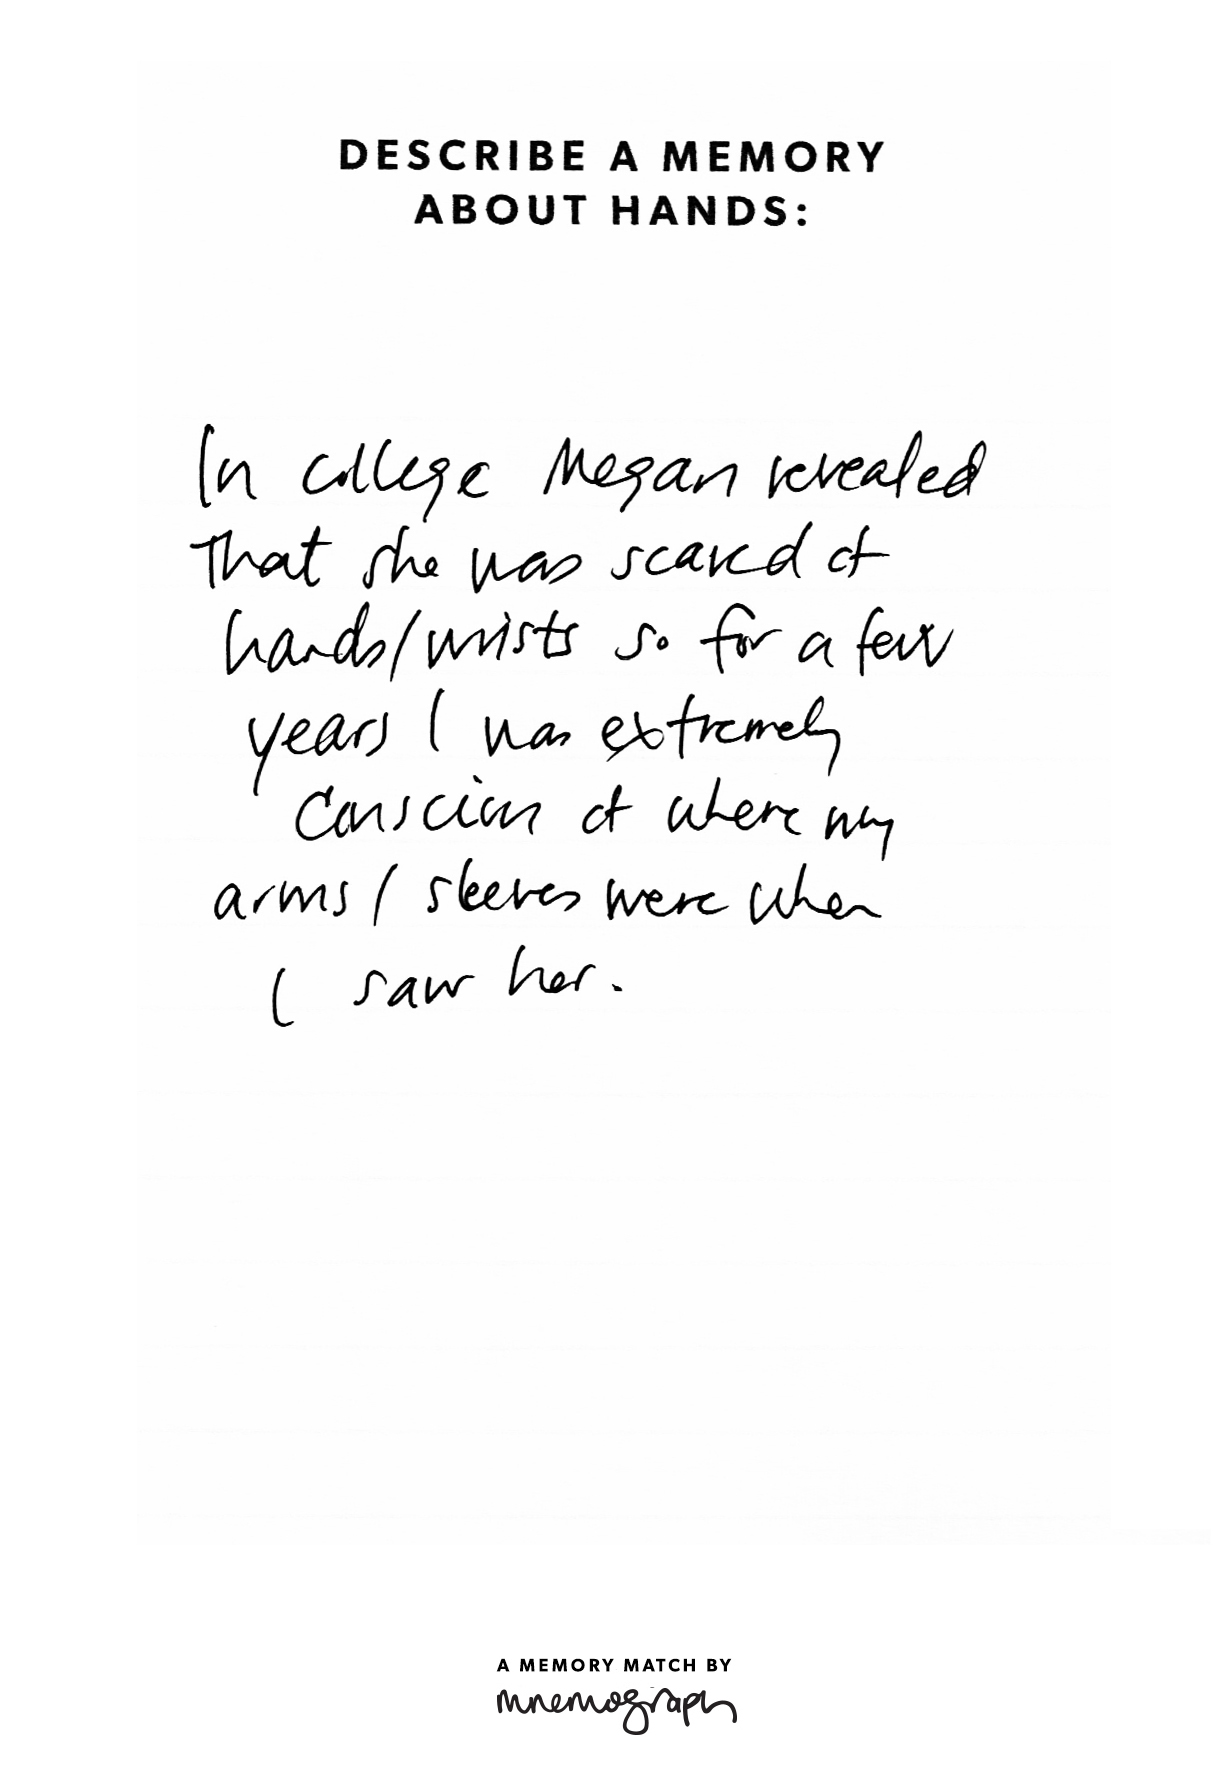 DESCRIBE A MEMORY
ABOUT HANDS:
In college Megan revealed
That she was scared of
hands/wrists so for a few
years I was extremely
conscious of where my
arms/sleeves were when
I saw her.
A MEMORY MATCH BY
mnemograph